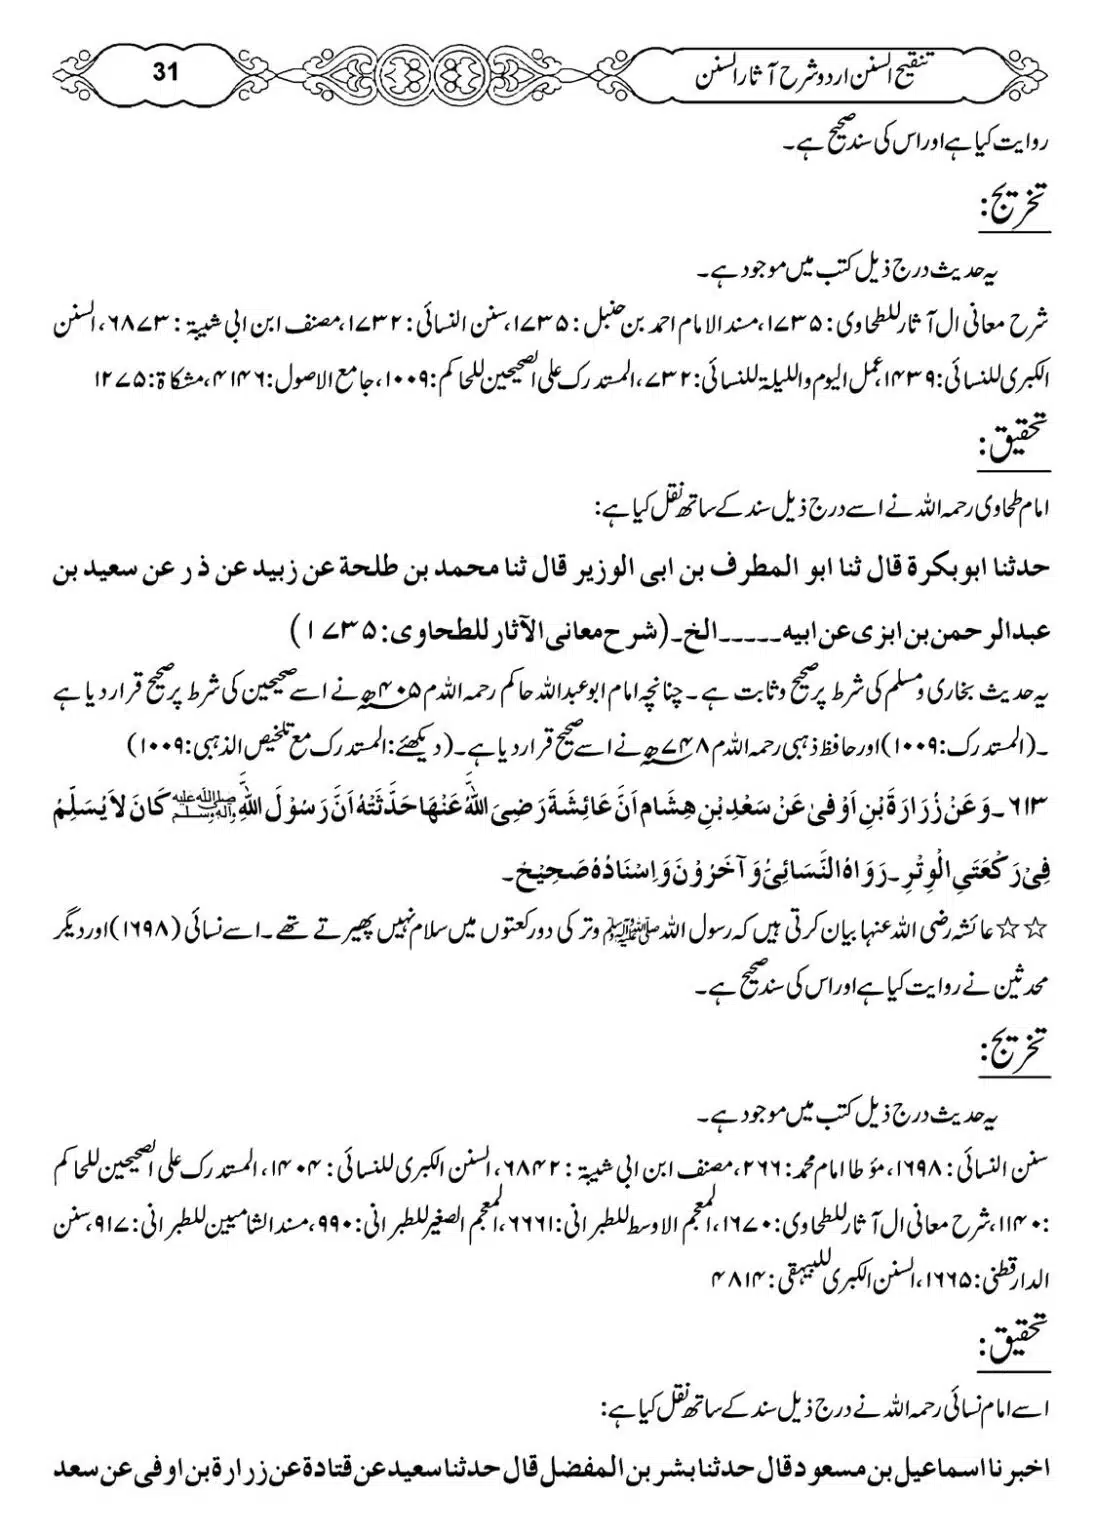 تنقیح السنن اردو شرح آثار السنن
31
روایت کیا ہے اور اس کی سند صحیح ہے۔
تخریج:
یہ حدیث درج ذیل کتب میں موجود ہے۔
شرح معانی ال آثار للطحاوی: ۱۷۳۵، مسند الامام احمد بن حنبل: ۱۷۳۵، سنن النسائی: ۱۷۳۲، مصنف ابن ابی شیبۃ: ۶۸۷۳، السنن
الکبری للنسائی: ۱۴۳۹، عمل الیوم واللیلۃ للنسائی: ۷۳۲، المستدرک علی الصحیحین للحاکم: ۱۰۰۹، جامع الاصول: ۴۱۴۶، مشکاۃ: ۱۲۷۵
تحقیق:
امام طحاوی رحمہ اللہ نے اسے درج ذیل سند کے ساتھ نقل کیا ہے:
حدثنا ابوبکرۃ قال ثنا ابو المطرف بن ابی الوزیر قال ثنا محمد بن طلحۃ عن زبید عن ذر عن سعید بن
عبدالرحمن بن ابزی عن ابیہ۔۔۔۔۔الخ۔(شرح معانی الآثار للطحاوی: ۱۷۳۵)
یہ حدیث بخاری و مسلم کی شرط پر صحیح و ثابت ہے۔ چنانچہ امام ابو عبداللہ حاکم رحمہ اللہ م ۴۰۵ھ نے اسے صحیحین کی شرط پر صحیح قرار دیا ہے
۔(المستدرک: ۱۰۰۹) اور حافظ ذہبی رحمہ اللہ م ۷۴۸ھ نے اسے صحیح قرار دیا ہے۔ (دیکھئے: المستدرک مع تلخیص الذہبی: ۱۰۰۹)
۶۱۳۔وَعَنْ زُرَارَةَ بْنِ اَوْفیٰ عَنْ سَعْدِ بْنِ هِشَام اَنَّ عَائِشَةَ رَضِیَ اللهُ عَنْهَا حَدَّثَتْهُ اَنَّ رَسُوْلَ اللهِ ﷺ كَانَ لاَ یُسَلِّمُ
فِیْ رَكْعَتَیِ الْوِتْرِ۔رَوَاهُ النَّسَائِیُّ وَآخَرُوْنَ وَاِسْنَادُهُ صَحِیْحٌ۔
☆☆عائشہ رضی اللہ عنہا بیان کرتی ہیں کہ رسول اللہ ﷺ وتر کی دو رکعتوں میں سلام نہیں پھیرتے تھے۔ اسے نسائی (۱۶۹۸) اور دیگر
محدثین نے روایت کیا ہے اور اس کی سند صحیح ہے۔
تخریج:
یہ حدیث درج ذیل کتب میں موجود ہے۔
سنن النسائی: ۱۶۹۸، مؤطا امام محمد: ۲۶۶، مصنف ابن ابی شیبۃ: ۶۸۴۲، السنن الکبری للنسائی: ۱۴۰۴، المستدرک علی الصحیحین للحاکم
:۱۱۴۰، شرح معانی ال آثار للطحاوی: ۱۶۷۰، المعجم الاوسط للطبرانی: ۶۶۶۱، المعجم الصغیر للطبرانی: ۹۹۰، مسند الشامیین للطبرانی: ۹۱۷، سنن
الدارقطنی: ۱۶۶۵، السنن الکبری للبیہقی: ۴۸۱۴
تحقیق:
اسے امام نسائی رحمہ اللہ نے درج ذیل سند کے ساتھ نقل کیا ہے:
اخبرنا اسماعیل بن مسعود قال حدثنا بشر بن المفضل قال حدثنا سعید عن قتادۃ عن زرارۃ بن اوفی عن سعد